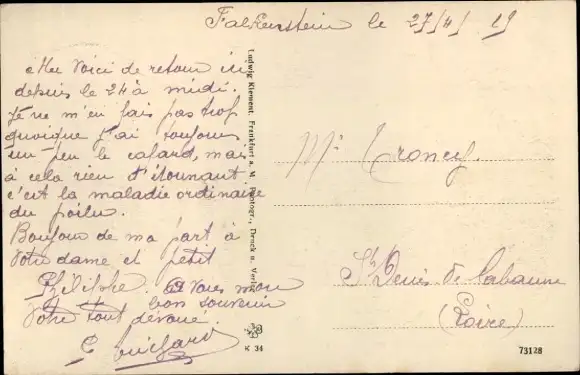 Falkenstein le 27/4/19
Me voici de retour ici
depuis le 24 à midi.
Je ne m'en fais pas trop
quoique j'ai toujours
un peu le cafard, mais
à cela rien d'étonnant
c'est la maladie ordinaire
du poilu.
Bonjour de ma part à
votre dame et petit
Philiphe. A vous mon
bon souvenir
Votre tout dévoué
Ludwig Klement, Frankfurt a. M. Photogr., Druck u. Verlag
K 34
Mr Troncy.
St Denis de Cabanne
(Loire)
73128